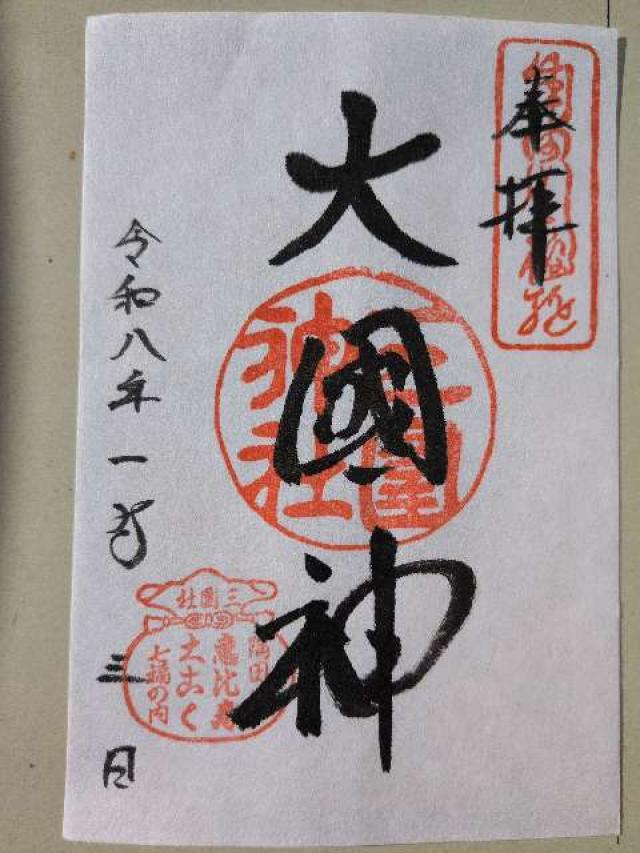 奉拝
大國神
三囲神社
三囲社
隅田
恵比寿
大こく
七福の内
令和八年一月三日